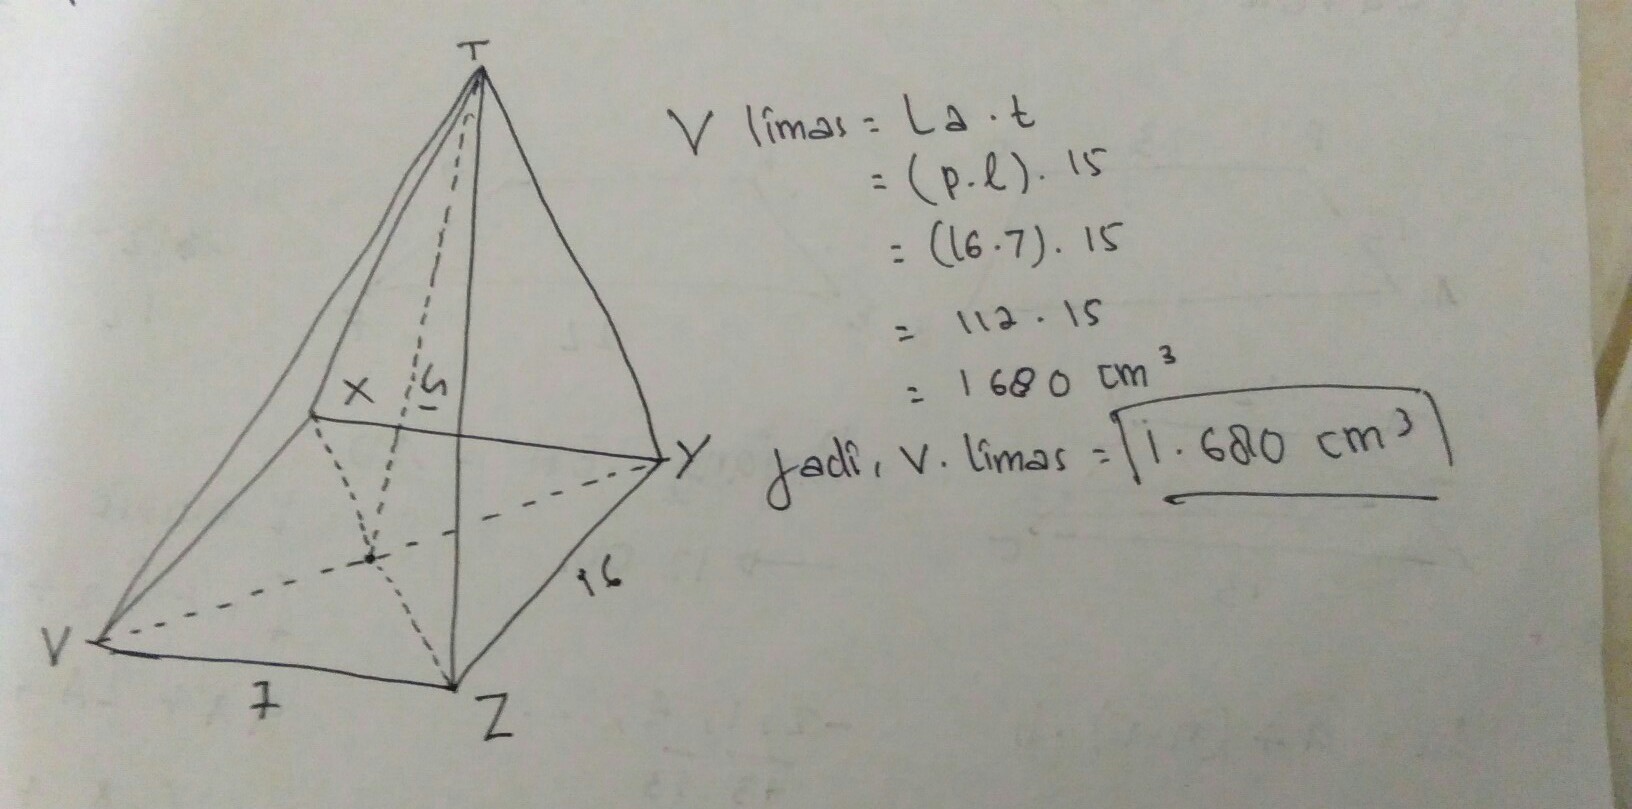 T
V limas = La . t
= (p.l). 15
= (16.7). 15
= 112 . 15
= 1680 cm³
Jadi, V. limas = 1.680 cm³
X
15
Y
16
V
7
Z